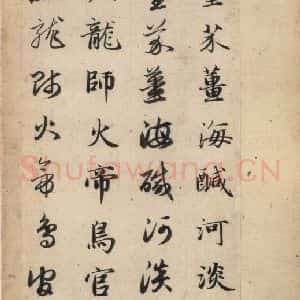 芥薑海鹹河淡
芥薑海鹹河淡
龍師火帝鳥官
龍師火帝鳥官
Shufawang.CN